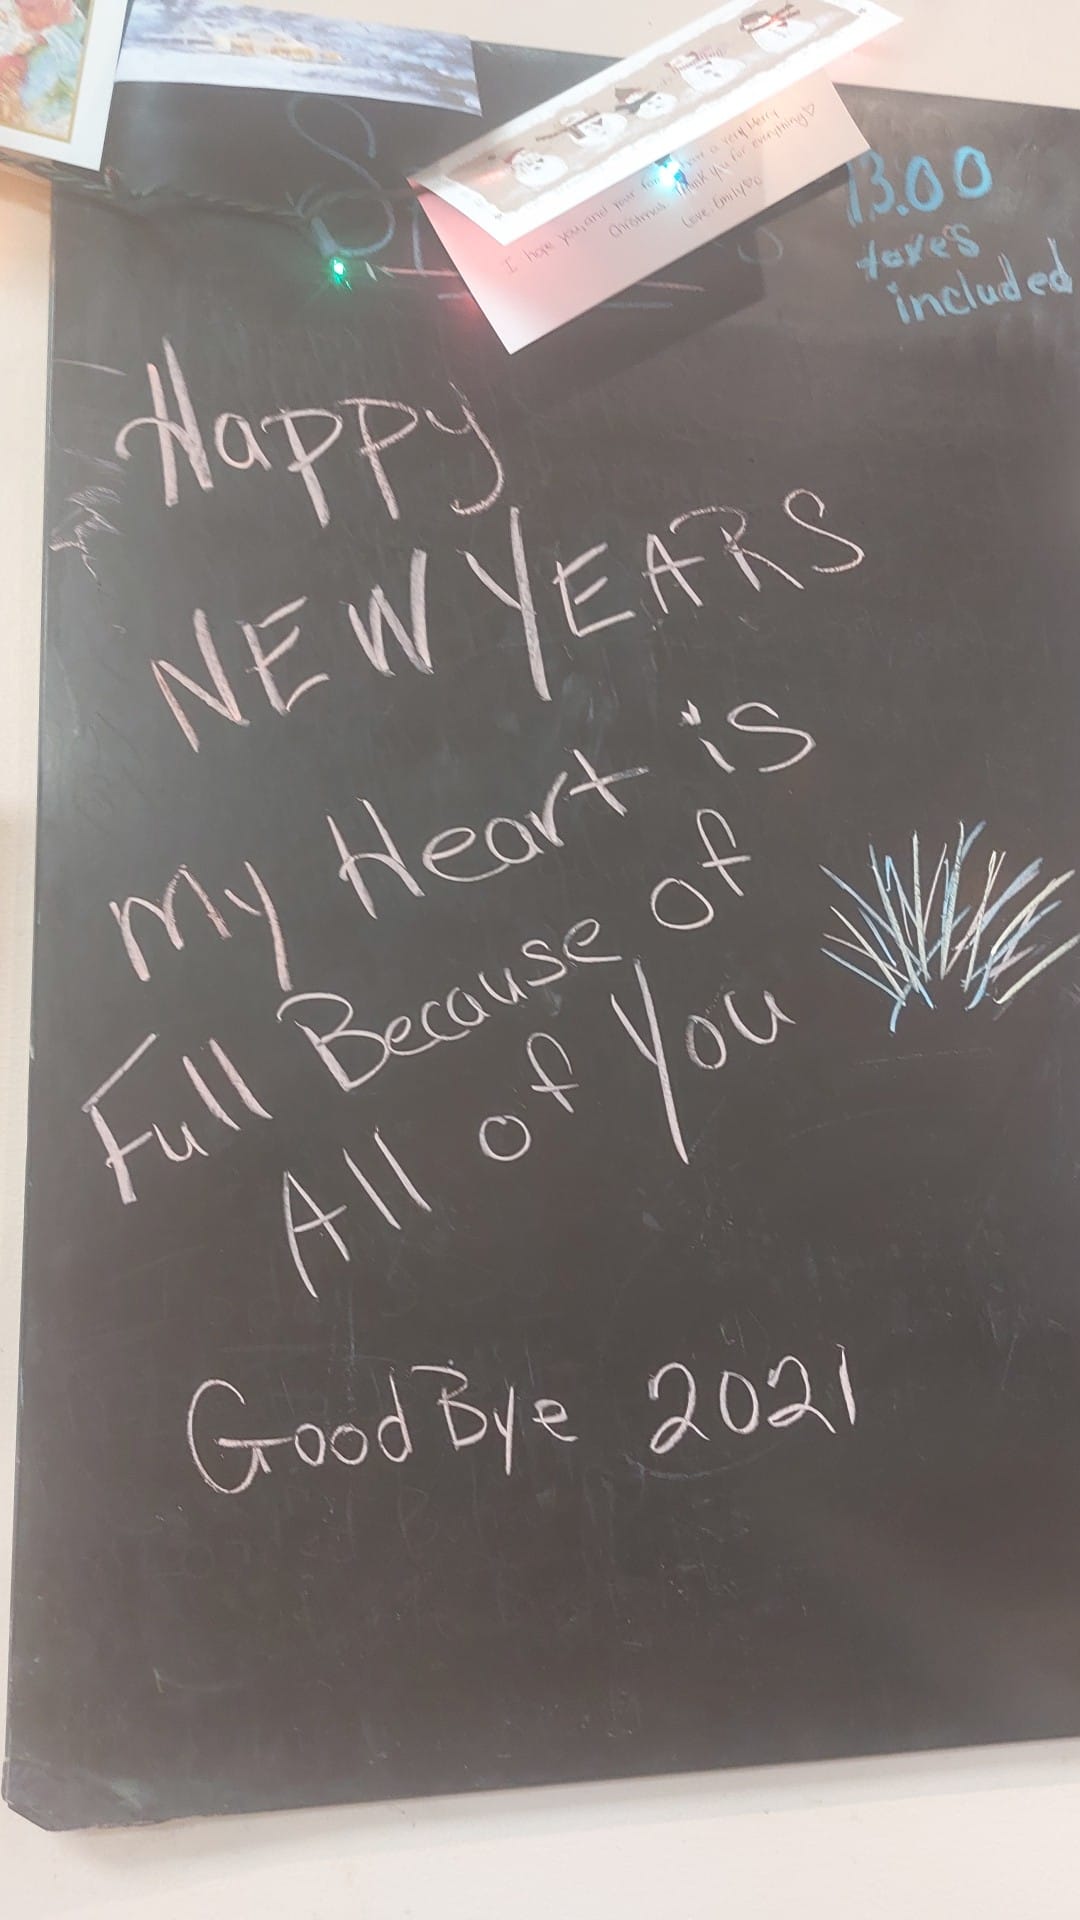 13.00
taxes
included
I hope you, and your family have a very Merry
Christmas. Thank you for everything♡
Love, Emily♡
Happy
NEW YEARS
My Heart is
Full Because of
All of You
GoodBye 2021